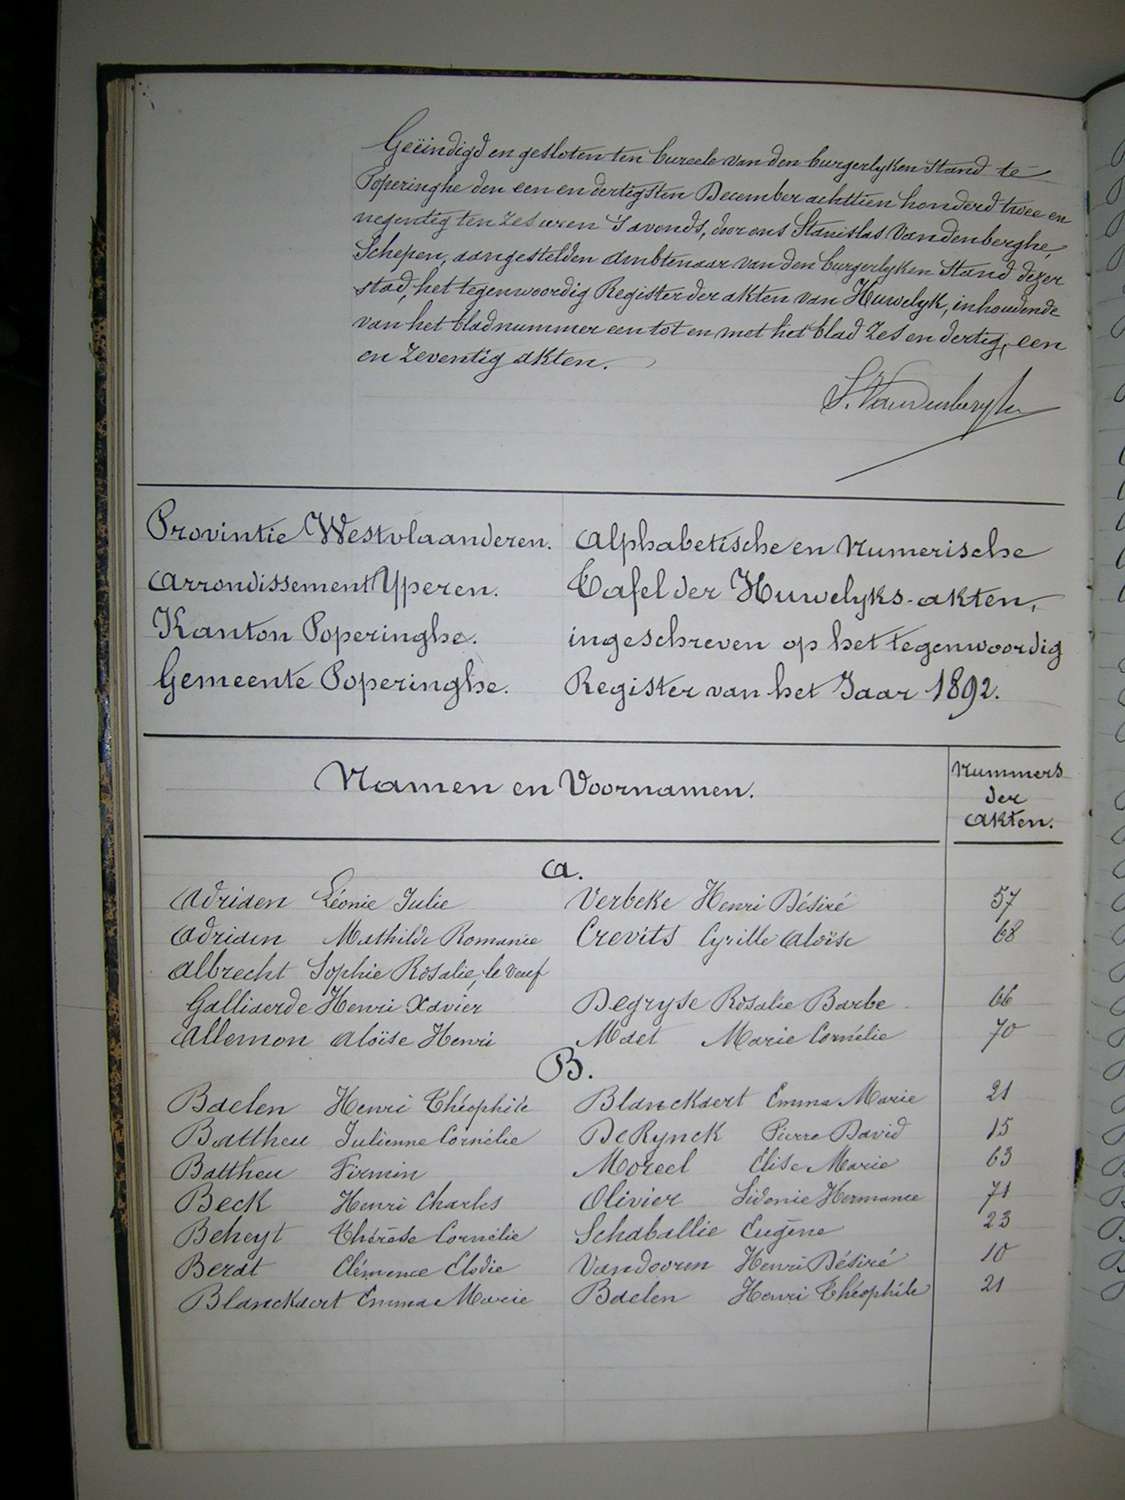 Geëindigd en gesloten ten bureele van den burgerlyken stand te
Poperinghe den een en dertigsten December achttien honderd twee en
negentig ten zes uren 's avonds, door ons Stanislas Vandenberghe,
Schepen, aangestelden ambtenaar van den burgerlyken Stand dezer
stad, het tegenwoordig Register der akten van Huwelyk, inhoudende
van het blad nummer een tot en met het blad zes en dertig, een
en zeventig akten.
S. Vandenberghe
Provintie Westvlaanderen.
Arrondissement Yperen.
Kanton Poperinghe.
Gemeente Poperinghe.
Alphabetische en Numerische
Tafel der Huwelyks-akten,
ingeschreven op het tegenwoordig
Register van het Jaar 1892.
Namen en Voornamen.
Nummers
der
akten.
A.
Adriaen Léonie Julie Verbeke Henri Désiré 57
Adriaen Mathilde Romanie Crevits Cyrille Aloïse 68
Albrecht Sophie Rosalie, le veuf
Galliaerde Henri Xavier Degryse Rosalie Barbe 66
Allemon Aloïse Henri Maet Marie Cornélie 70
B.
Baelen Henri Théophile Blanckaert Emma Marie 21
Battheu Julienne Cornélie DeRynck Pierre David 15
Battheu Firmin Moreel Elise Marie 63
Beck Henri Charles Olivier Sidonie Hermance 71
Beheyt Thérèse Cornélie Schaballie Eugène 23
Berat Clémence Elodie Vandoorm Henri Désiré 10
Blanckaert Emma Marie Baelen Henri Théophile 21